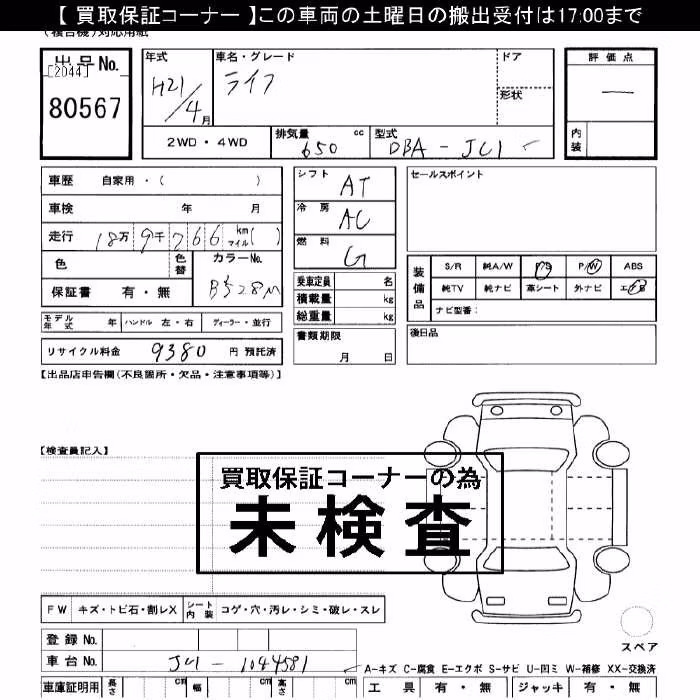 【 買取保証コーナー 】この車両の土曜日の搬出受付は17:00まで
(複合機)対応用紙
出品No.
[2044]
80567
年式
H21/4月
車名・グレード
ライフ
ドア
形状
評価点
—
内装
2WD・4WD
排気量 650 cc
型式 DBA-JC1
車歴 自家用・( )
車検 年 月
走行 18万9千766 km マイル( )
色 色替 カラーNo.
B528M
保証書 有・無
シフト AT
冷房 AC
燃料 G
乗車定員 名
積載量 kg
総重量 kg
書類期限
月 日
セールスポイント
装備品
S/R 純A/W P/S P/W ABS
純TV 純ナビ 革シート 外ナビ エアB
ナビ型番:
後日品
モデル年式 年 ハンドル 左・右 ディーラー・並行
リサイクル料金 9380 円 預託済
【出品店申告欄(不良箇所・欠品・注意事項等)】
【検査員記入】
買取保証コーナーの為
未検査
FW キズ・トビ石・割レX シート内装 コゲ・穴・汚レ・シミ・破レ・スレ
登録No.
車台No. JC1-1044581
スペア
A-キズ C-腐食 E-エクボ S-サビ U-凹ミ W-補修 XX-交換済
車庫証明用 長さ cm 幅 cm 高さ cm
工具 有・無 ジャッキ 有・無